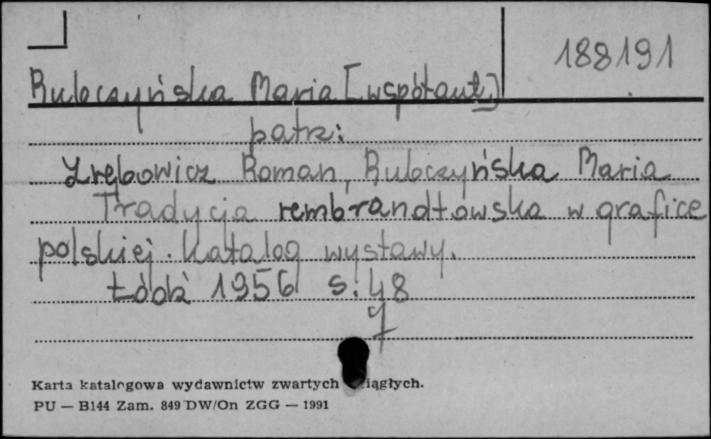 188191
Rubczyńska Maria [współaut.]
patrz:
Zrębowicz Roman, Rubczyńska Maria
Tradycja rembrandtowska w grafice
polskiej. Katalog wystawy.
Łódź 1956 s. 48
Karta katalogowa wydawnictw zwartych ciągłych.
PU — B144 Zam. 849 DW/On ZGG — 1991